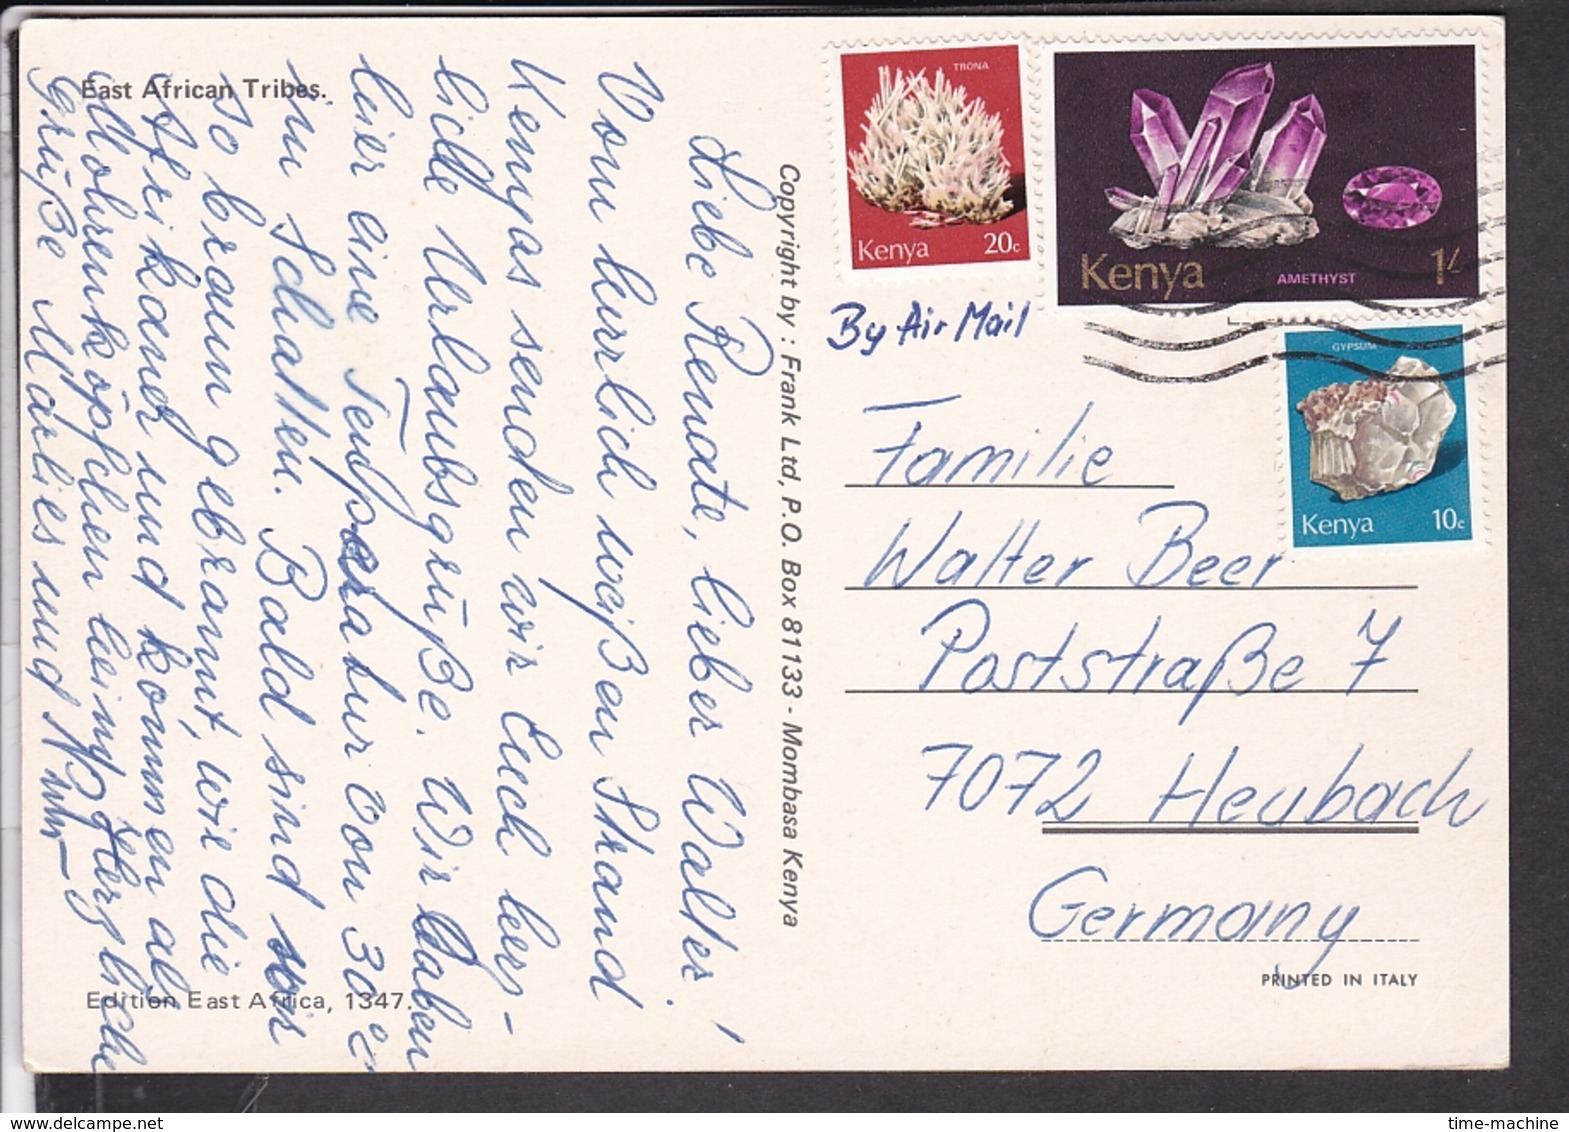 East African Tribes.
Liebe Renate, lieber Walter!
Vom herrlich weißen Strand
Kenyas senden wir Euch herz-
liche Urlaubsgrüße. Wir haben
hier eine Temperatur von 30°C
im Schatten. Bald sind wir
so braun gebrannt, wie die
Afrikaner und kommen als
Mohrenköpfchen heim. Herzliche
Grüße Marlies und
Edition East Africa, 1347.
Copyright by : Frank Ltd, P.O. Box 81133 - Mombasa Kenya
TRONA
Kenya 20c
Kenya AMETHYST 1/-
GYPSUM
Kenya 10c
By Air Mail
Familie
Walter Beer
Poststraße 7
7072 Heubach
Germany
PRINTED IN ITALY
time-machine